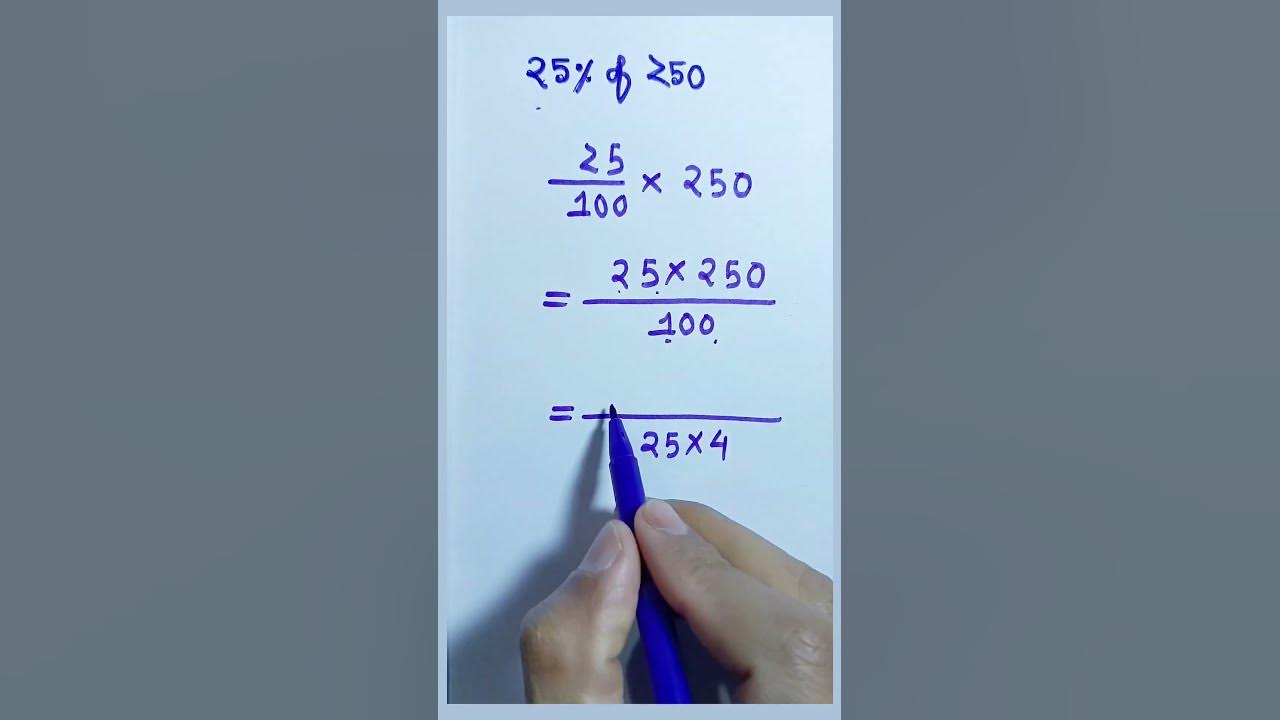 25% of 250
25
100
× 250
= 25×250
100
=
25×4